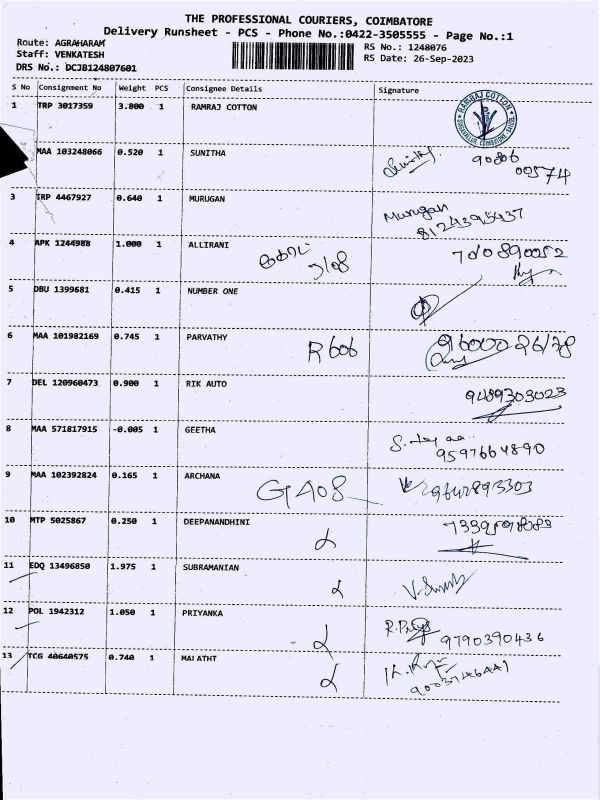 THE PROFESSIONAL COURIERS, COIMBATORE
Delivery Runsheet - PCS - Phone No.:0422-3505555 - Page No.:1
Route: AGRAHARAM
RS No.: 1248076
Staff: VENKATESH
RS Date: 26-Sep-2023
DRS No.: DCJB124807601
S No Consignment No Weight PCS Consignee Details Signature
1 TRP 3017359 3.800 1 RAMRAJ COTTON
RAMRAJ COTTON
MAA 103248066 0.520 1 SUNITHA 90806
00574
3 TRP 4467927 0.640 1 MURUGAN Murugan
8124395437
4 APK 1244988 1.000 1 ALLIRANI
5 DBU 1399681 0.415 1 NUMBER ONE
6 MAA 101982169 0.745 1 PARVATHY R606
7 DEL 120960473 0.900 1 RIK AUTO 9489303023
8 MAA 571817915 -0.005 1 GEETHA
9597664890
9 MAA 102392824 0.165 1 ARCHANA G408
10 MTP 5025867 0.250 1 DEEPANANDHINI
11 EDQ 13496850 1.975 1 SUBRAMANIAN
12 POL 1942312 1.050 1 PRIYANKA 9790390436
13 TCG 40640575 0.740 1 MALATHI